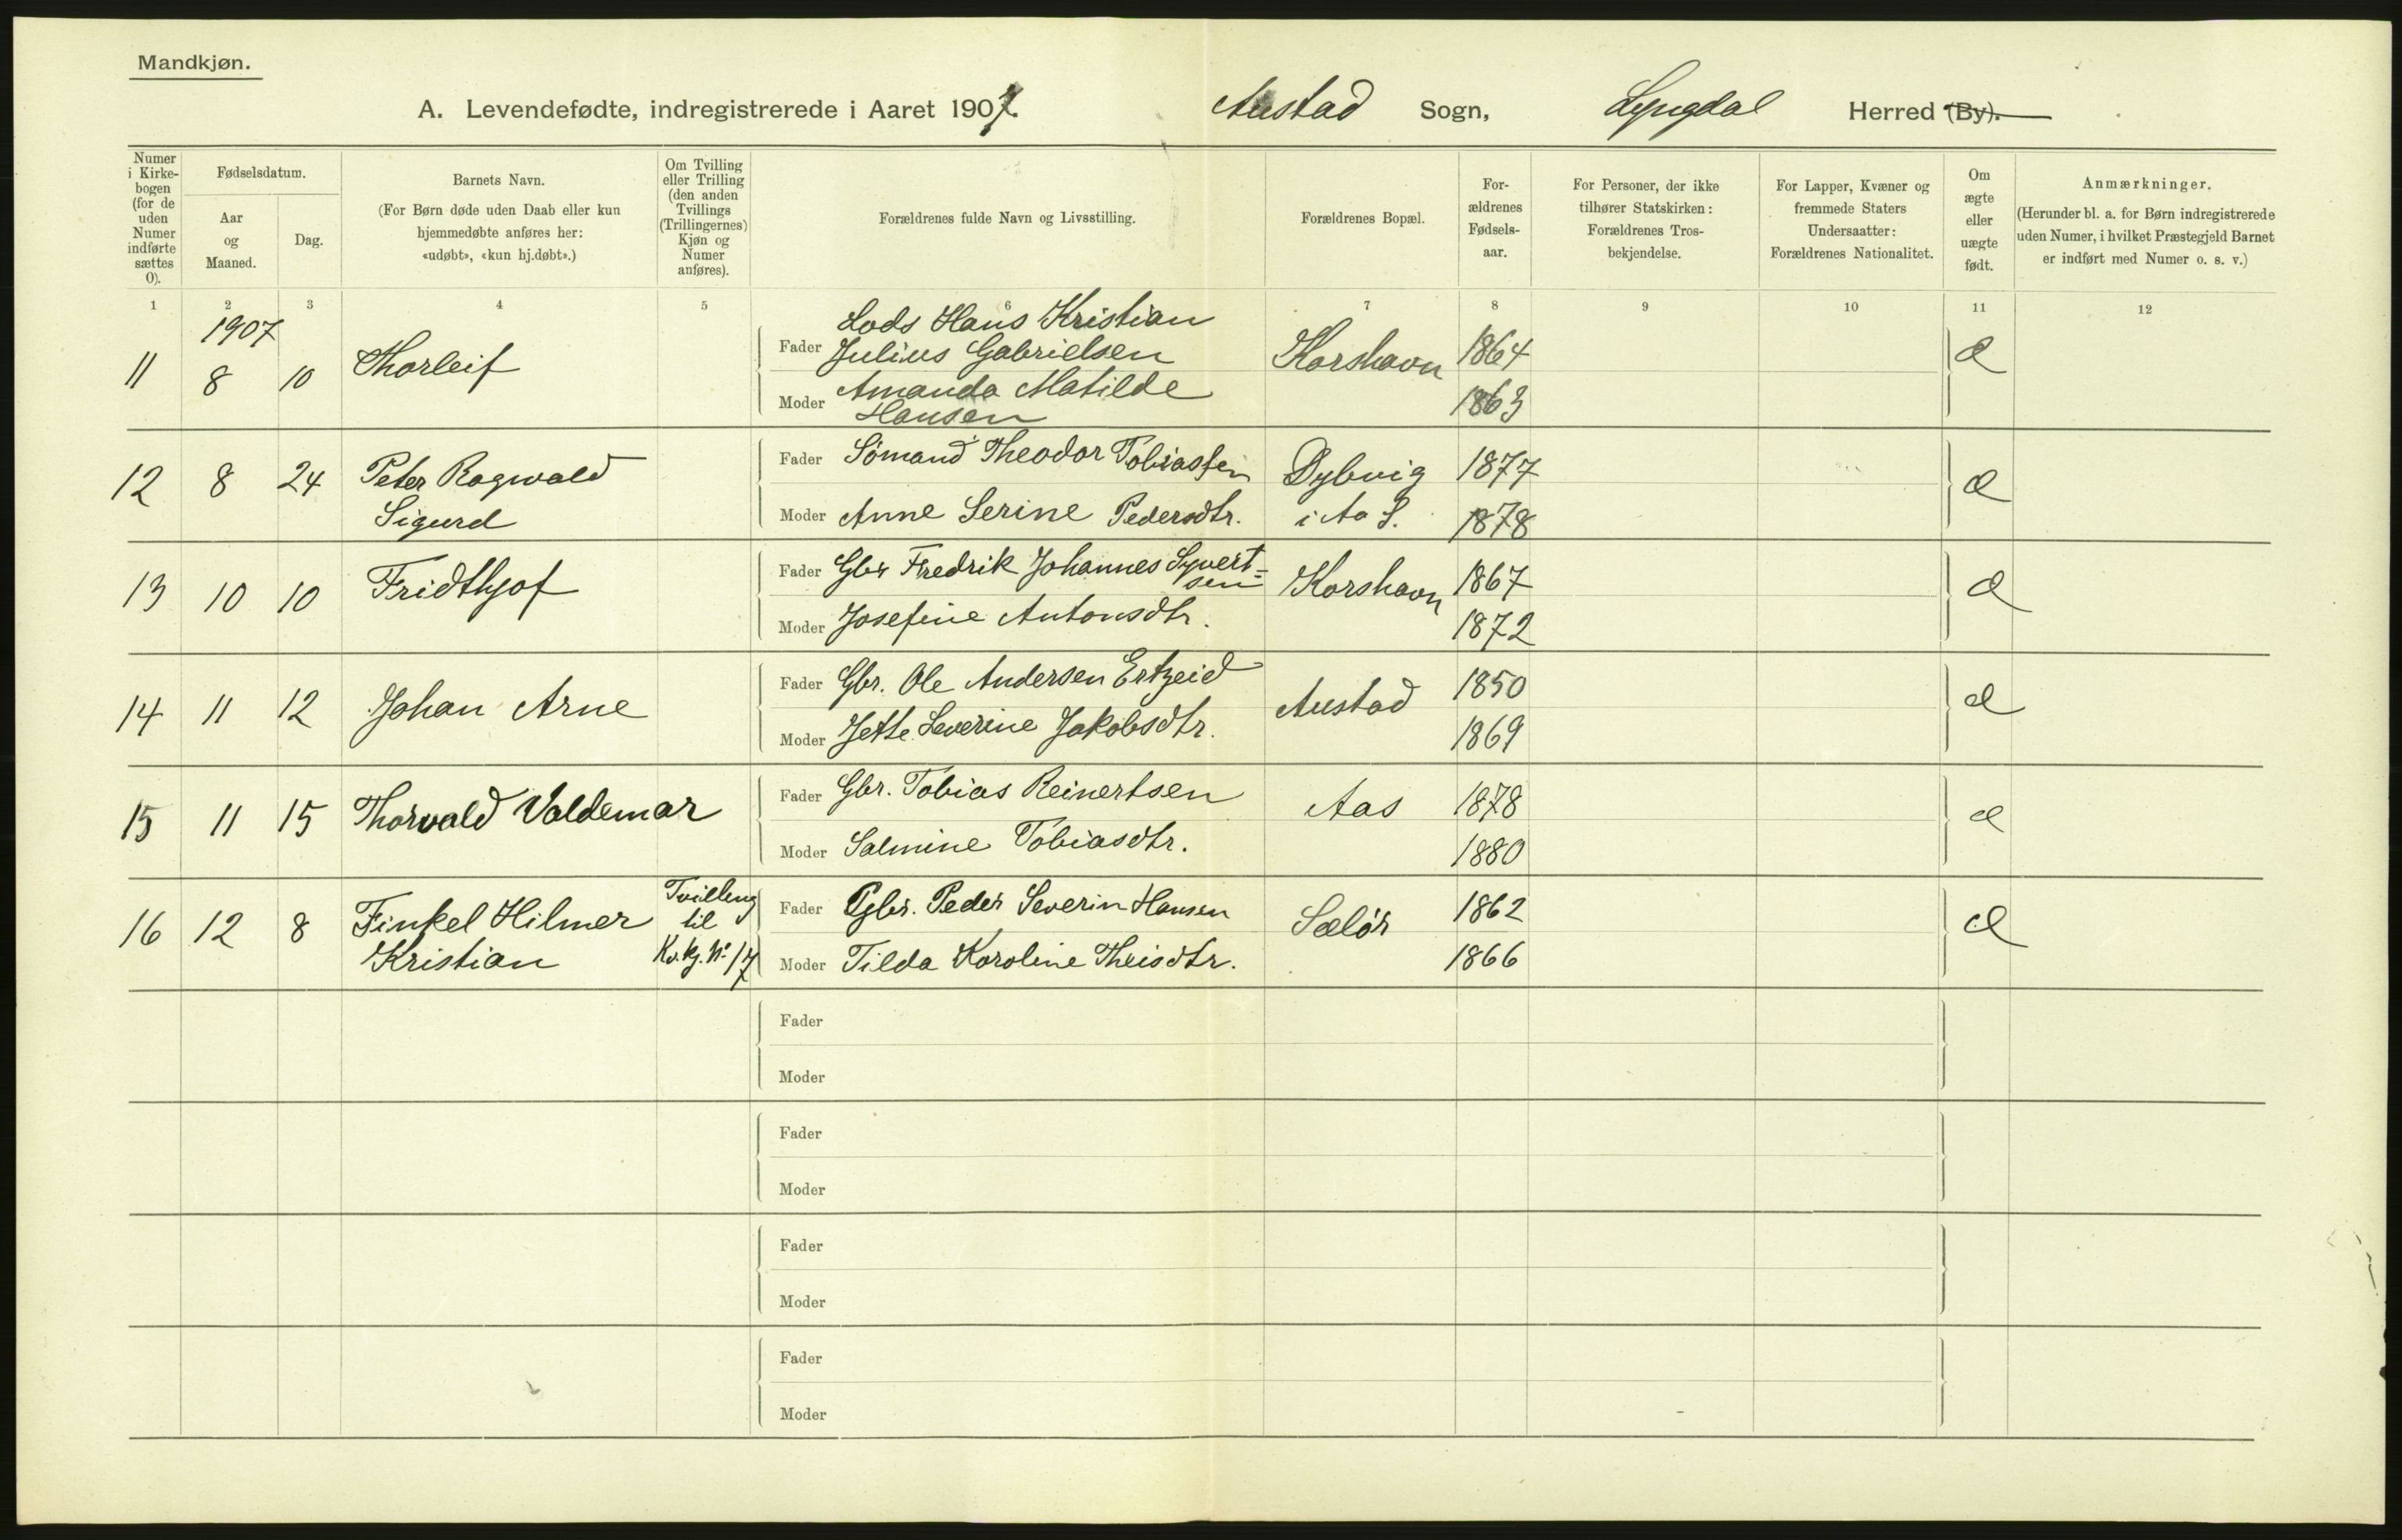 Mandkjøn.
A. Levendefødte, indregistrerede i Aaret 1907. Austad Sogn, Lyngdal Herred (By).
Numer i Kirke-bogen (for de uden Numer indførte sættes 0).
Fødselsdatum.
Aar og Maaned.
Dag.
Barnets Navn.
(For Børn døde uden Daab eller kun hjemmedøbte anføres her: «udøbt», «kun hj.døbt».)
Om Tvilling eller Trilling (den anden Tvillings (Trillingernes) Kjøn og Numer anføres).
Forældrenes fulde Navn og Livsstilling.
Forældrenes Bopæl.
For-ældrenes Fødsels-aar.
For Personer, der ikke tilhører Statskirken: Forældrenes Tros-bekjendelse.
For Lapper, Kvæner og fremmede Staters Undersaatter: Forældrenes Nationalitet.
Om ægte eller uægte født.
Anmærkninger.
(Herunder bl. a. for Børn indregistrerede uden Numer, i hvilket Præstegjeld Barnet er indført med Numer o. s. v.)
1 2 3 4 5 6 7 8 9 10 11 12
1907
11 8 10 Thorleif
Fader Lods Hans Kristian Julius Gabrielsen Korshavn 1864 æ
Moder Amanda Matilde Hansen 1863
12 8 24 Peter Ragwald Sigurd
Fader Sömand Theodor Tobiassen Dybvig i Aa S. 1877 æ
Moder Anne Serine Pedersdtr. 1878
13 10 10 Fridthjof
Fader Gbr Fredrik Johannes Syvert=sen Korshavn 1867 æ
Moder Josefine Antonsdtr. 1872
14 11 12 Johan Arne
Fader Gbr. Ole Andersen Ertzeid Austad 1850 æ
Moder Jette Severine Jakobsdtr. 1869
15 11 15 Thorvald Valdemar
Fader Gbr. Tobias Reinertsen Aas 1878 æ
Moder Salmine Tobiasdtr. 1880
16 12 8 Finkel Hilmer Kristian Tvilling til Kv.kj. No 17
Fader Gbr. Peder Severin Hansen Sælör 1862 æ
Moder Tilda Karoline Theisdtr. 1866
Fader
Moder
Fader
Moder
Fader
Moder
Fader
Moder